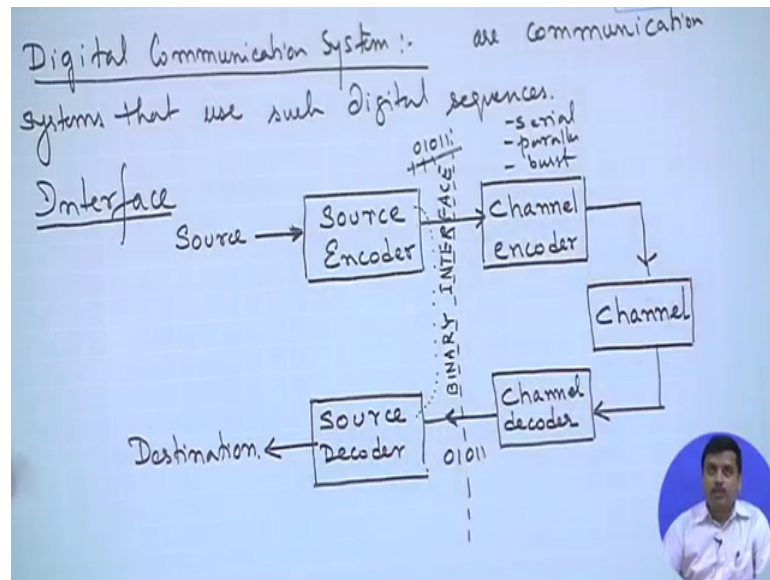 Digital Communication System:- are communication
systems that use such digital sequences.
Interface
- serial
- parallel
- burst
01011
Source
Source
Encoder
BINARY INTERFACE
Channel
encoder
Channel
Channel
decoder
01011
Source
Decoder
Destination.